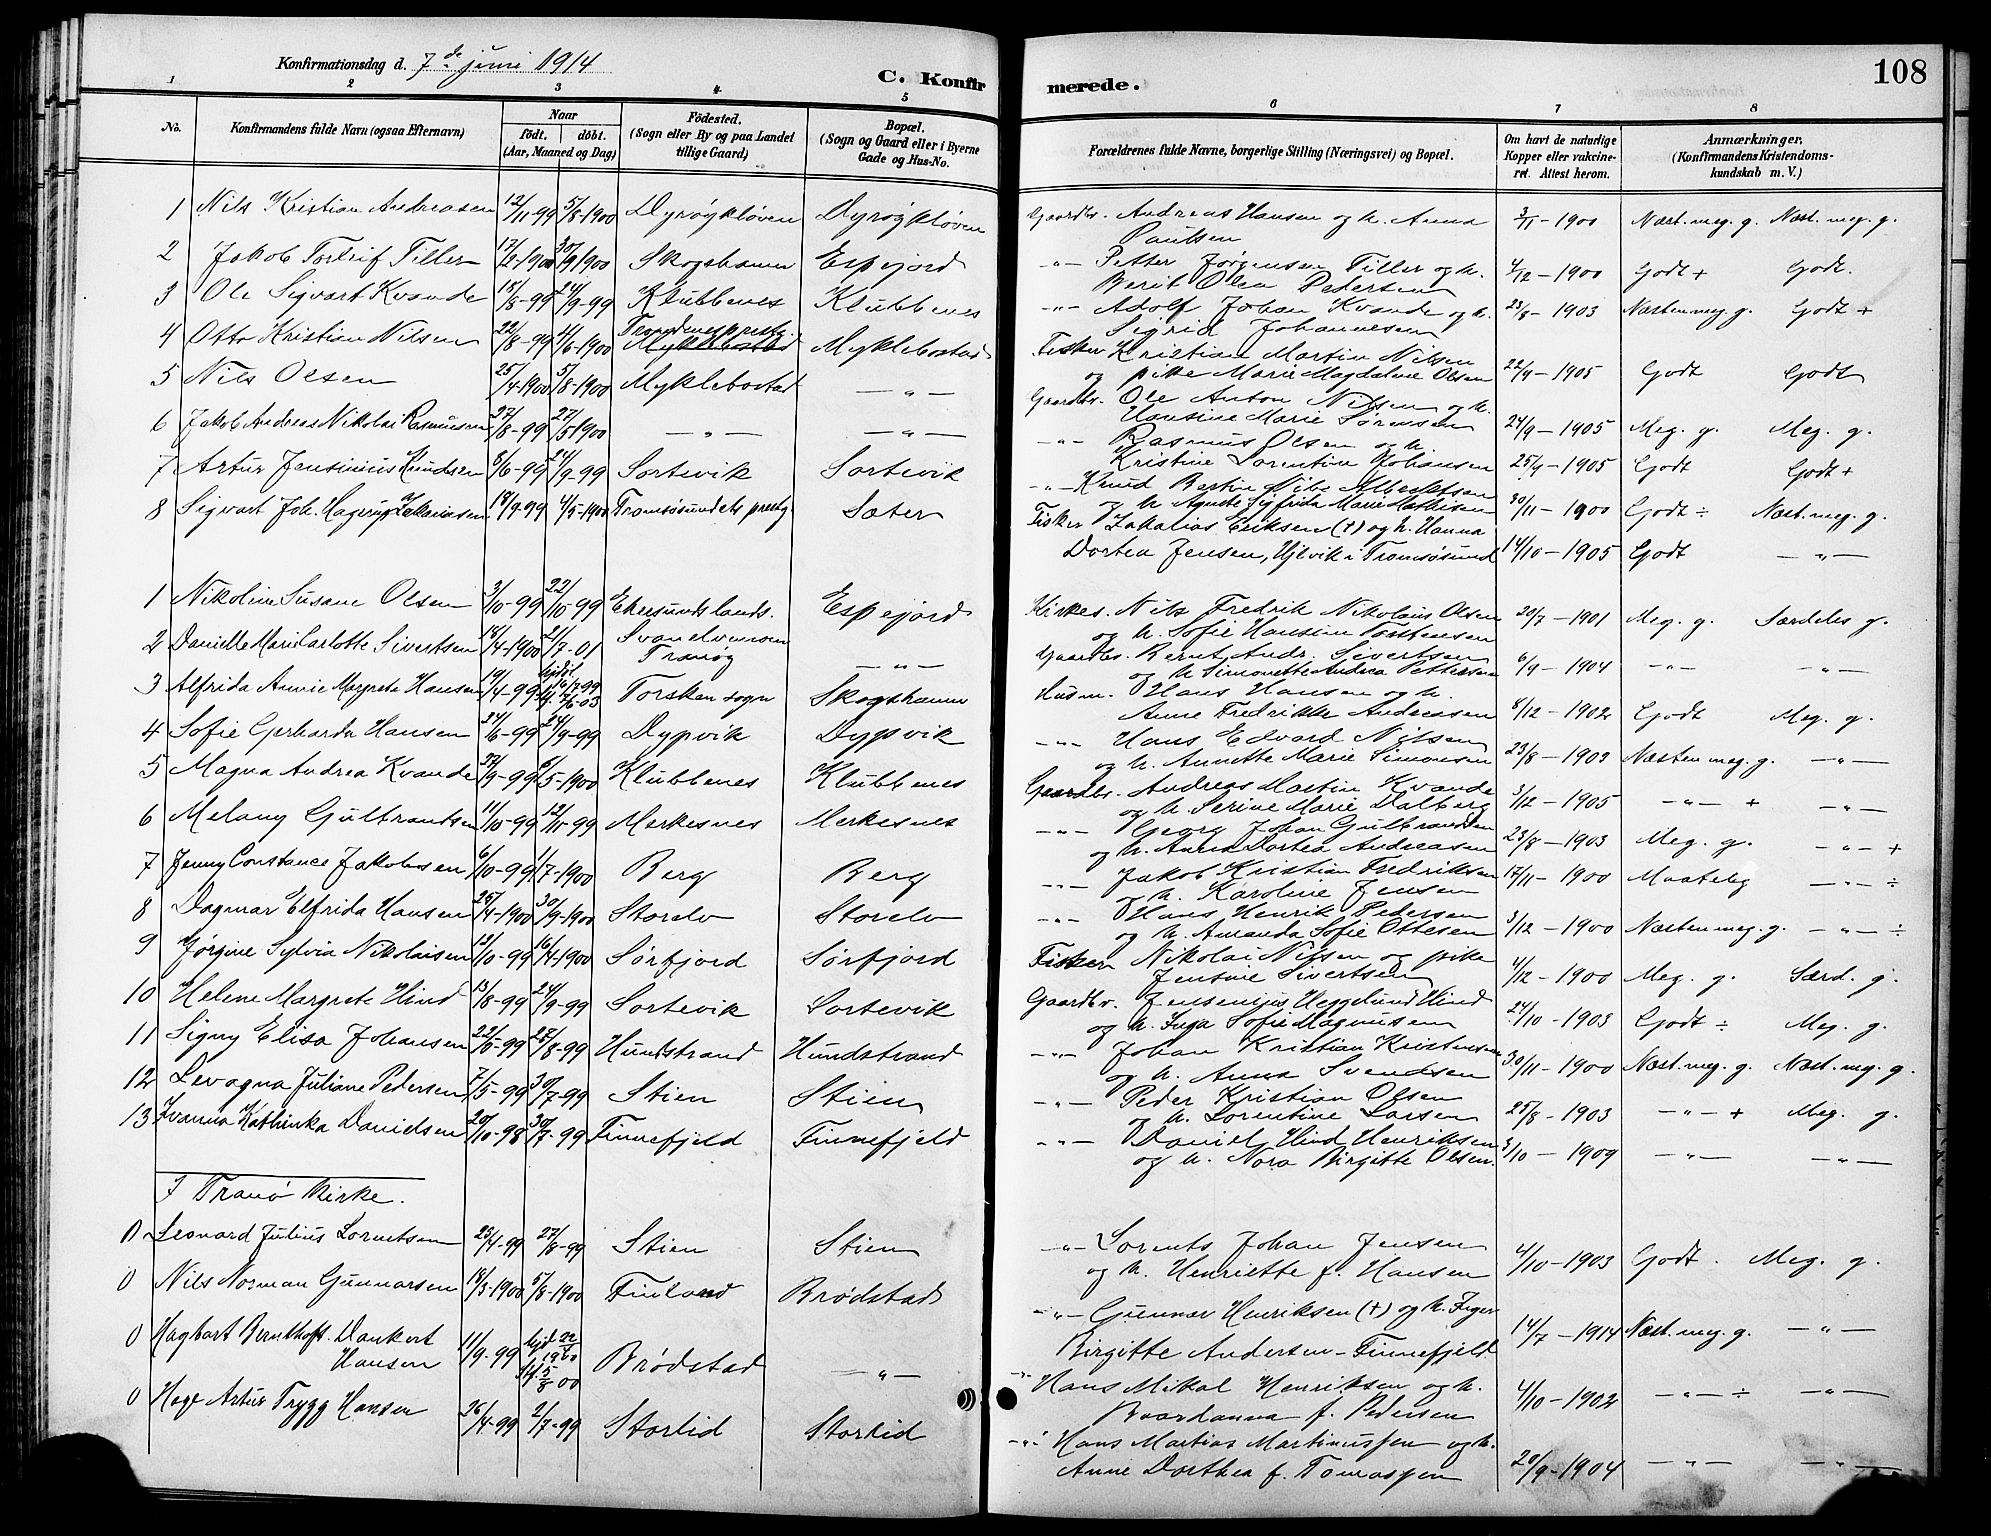 108
Konfirmationsdag d. 7de juni 1914
C. Konfirmerede.
1 2 3 4 5 6 7 8
No.
Konfirmandens fulde Navn (ogsaa Efternavn)
Naar
født. døbt.
(Aar, Maaned og Dag)
Fødested.
(Sogn eller By og paa Landet
tillige Gaard)
Bopæl.
(Sogn og Gaard eller i Byerne
Gade og Hus-No.
Forældrenes fulde Navne, borgerlige Stilling (Næringsvei) og Bopæl.
Om havt de naturlige
Kopper eller vakcine-
ret. Attest herom.
Anmærkninger.
(Konfirmandens Kristendoms-
kundskab m. V.)
1 Nils Kristian Andreasen 12/11-99 5/8-1900 Dyrøykløven Dyrøykløven Gaardbr. Andreas Hansen og h. Anna Paulsen 3/1-1900 Næst. meg. g. Næst. meg. g.
2 Jakob Torleif Tiller 17/2-1900 30/9 1900 Skogshamn Espejord -"- Petter Jørgensen Tiller og h. Berit Olea Pedersen 4/12-1900 Godt + Godt.
3 Ole Sigvart Kvande 18/8-99 24/9-99 Klubbenes Klubbenes -"- Adolf Johan Kvande og h. Sigrid Johannesen 23/8-1903 Næsten meg. g. Godt +
4 Otto Kristian Nilsen 22/8-99 4/6-1900 Trondenes prestg. Myklebostad Fisker Kristian Martin Nilsen og pike Marie Magdalene Olsen 22/9-1905 Godt Godt
5 Nils Olsen 25/4-1900 5/8-1900 Myklebostad -"- Gaardbr. Ole Anton Nilsen og h. Hansine Marie Sørensen 24/9-1905 Meg. g. Meg. g.
6 Jakob Andreas Nikolai Rasmussen 27/8-99 27/5 1900 -"- -"- -"- Rasmus Olsen og h. Kristine Lorentine Johansen 25/9-1905 Godt Godt +
7 Artur Jensinius Knudsen 8/6-99 24/9-99 Sortevik Sortevik -"- Knud Bertin Nibe Albertsen og h. Agnete Sigfrida Marie Mathisen 30/11-1900 Godt ÷ Næst. meg. g.
8 Sigvart Joh. Hagerup Zakariassen 18/9-99 4/5-1900 Tromsøsundets prestg. Sæter Fisker Zakarias Eriksen (†) og h. Hanna Dortea Jensen, Ujlvik i Tromsøsund 14/10-1905 Godt -"-
1 Nikoline Susane Olsen 3/10-99 22/10-99 Ekersunds lands. Espejord Kirkes. Nils Fredrik Nikolaus Olsen og h. Sofie Hansine Torstensen 20/7-1901 Meg. g. Særdeles g.
2 Danielle Marie Carlotte Sivertsen 18/4-1900 21/7-01 Svanelvmoen Tranøy -"- Gaardbr. Bernt Andr. Sivertsen og h. Simonette Andrea Pettersen 6/9-1904 -"- -"-
3 Alfrida Annie Margrete Hansen 19/4-99 hjdt. 16/7 99 st. 7/6-03 Torsken sogn Skogshamn Husm. Hans Hansen og h. Anne Fredrikke Andreassen 8/12-1902 Godt Meg. g.
4 Sofie Gerharda Hansen 24/6-99 24/9-99 Dypvik Dypvik -"- Hans Edvard Nilsen og h. Annette Marie Simonsen 23/8-1903 Næsten meg. g. -"-
5 Magna Andrea Kvande 27/9-99 6/5-1900 Klubbenes Klubbenes Gaardbr. Andreas Martin Kvande og h. Serine Marie Dalberg 3/12-1905 -"- + -"-
6 Melany Gulbrandsen 11/10-99 12/11-99 Merkesnes Merkesnes -"- Georg Johan Gulbrandsen og h. Anna Dortea Andreasen 23/8-1903 Meg. g. -"- +
7 Jenny Constance Jakobsen 6/10-99 1/7-1900 Berg Berg -"- Jakob Kristian Fredriksen og h. Karoline Jensen 17/11-1900 Maatelig -"- ÷
8 Dagmar Elfrida Hansen 25/4-1900 30/9-1900 Storelv Storelv -"- Hans Henrik Pedersen og h. Amanda Sofie Ottesen 3/12-1900 Næsten meg. g. -"- ÷
9 Jørgine Sylvia Nikolaisen 12/10-99 16/4-1900 Sørfjord Sørfjord Fisker Nikolai Nilsen og pike Jensine Sivertsen 4/12-1900 Meg. g. Særd. g.
10 Helene Margrete Hind 13/8-99 24/9-99 Sortevik Sortevik Gaardbr. Jensenius Heggelund Hind og h. Inga Sofie Magnusen 24/10-1903 Godt ÷ Meg. g.
11 Signy Elisa Johansen 22/5-99 27/8-99 Hundstrand Hundstrand -"- Johan Kristian Kristensen og h. Anna Svendsen 30/11-1900 Næst. meg. g. Næst. meg. g.
12 Levagna Juliane Pedersen 7/5-99 30/7-99 Stien Stien -"- Peder Kristian Olsen og h. Lorentine Larsen 25/8-1903 -"- + Meg. g.
13 Ivanna Kathinka Danielsen 20/10-98 30/7-99 Finnefjeld Finnefjeld -"- Daniel Hind Henriksen og h. Nora Birgitte Olsen. 3/10-1909 -"- -"-
I Tranø Kirke.
0 Leonard Julius Lorentsen 23/4-99 27/8-99 Stien Stien -"- Lorents Johan Jensen og h. Henriette f. Hansen 4/10-1903 Godt. Meg. g.
0 Nils Norman Gunnarsen 19/3-1900 5/8-1900 Finland Brødstad -"- Gunnar Henriksen (†) og h. Inger Birgitte Andersen-Finnefjeld 14/7-1914 Næst. meg. g. -"-
0 Hagbart Bernthoft Dankert Hansen 11/9-99 hjd 22/1900 st 5/8 00 Brødstad -"- -"- Hans Mikal Henriksen og h. Baardanna f. Pedersen 4/10-1902 -"- ÷ -"-
0 Hege Artur Trygg Hansen 26/4-99 2/7-99 Storlid Storlid -"- Hans Martias Martinussen og h. Anne Dorthea f. Tomassen 20/9-1904 -"- -"-